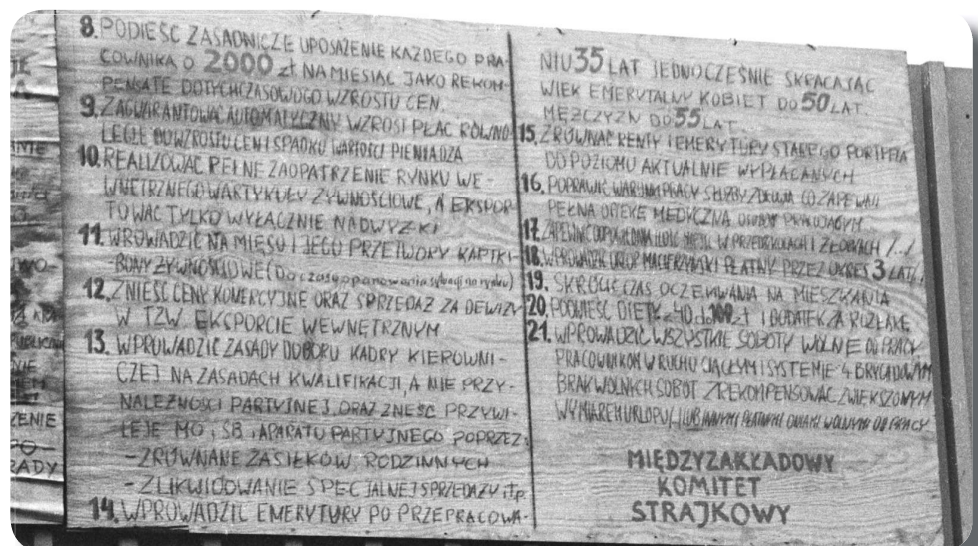 8. PODIEŚĆ ZASADNICZE UPOSAŻENIE KAŻDEGO PRA-
COWNIKA O 2000 zł NA MIESIĄC JAKO REKOM-
PENSATE DOTYCHCZASOWEGO WZROSTU CEN.
9. ZAGWARANTOWAĆ AUTOMATYCZNY WZROST PŁAC RÓWNO-
LEGLE DO WZROSTU CEN I SPADKU WARTOŚCI PIENIĄDZA
10. REALIZOWAĆ PEŁNE ZAOPATRZENIE RYNKU WE-
WNĘTRZNEGO W ARTYKUŁY ŻYWNOŚCIOWE, A EKSPOR-
TOWAĆ TYLKO WYŁĄCZNIE NADWYŻKI
11. WROWADZIĆ NA MIĘSO I JEGO PRZETWORY KARTKI-
-BONY ŻYWNOŚCIOWE (Do czasu opanowania sytuacji na rynku)
12. ZNIEŚĆ CENY KOMERCYJNE ORAZ SPRZEDAŻ ZA DEWIZY
W TZW. EKSPORCIE WEWNĘTRZNYM
13. WPROWADZIĆ ZASADY DOBORU KADRY KIEROWNI-
CZEJ NA ZASADACH KWALIFIKACJI, A NIE PRZY-
NALEŻNOŚCI PARTYJNEJ ORAZ ZNEŚĆ PRZYWI-
LEJE MO, SB i APARATU PARTYJNEGO POPRZEZ:
- ZRÓWNANE ZASIŁKÓW RODZINNYCH
- ZLIKWIDOWANIE SPECJALNEJ SPRZEDAŻY itp.
14. WPROWADZIĆ EMERYTURY PO PRZEPRACOWA-
NIU 35 LAT JEDNOCZEŚNIE SKRACAJĄC
WIEK EMERYTALNY KOBIET DO 50 LAT.
MĘŻCZYZN DO 55 LAT.
15. ZRÓWNAĆ RENTY I EMERYTURY STAREGO PORTFELA
DO POZIOMU AKTUALNIE WYPŁACANYCH
16. POPRAWIĆ WARUNKI PRACY SŁUŻBY ZDROWIA CO ZAPEWNI
PEŁNĄ OPIEKĘ MEDYCZNĄ OSOBOM PRACUJĄCYM
17. ZAPEWNIĆ ODPOWIEDNIĄ ILOŚĆ MIEJSC W PRZEDSZKOLACH I ŻŁOBKACH /../
18. WPROWADZIĆ URLOP MACIERZYŃSKI PŁATNY PRZEZ OKRES 3 LAT/../
19. SKRÓCIĆ CZAS OCZEKIWANIA NA MIESZKANIA
20. PODNIEŚĆ DIETY z 40 zł do 100 zł I DODATEK ZA ROZŁĄKĘ
21. WPROWADZIĆ WSZYSTKIE SOBOTY WOLNE OD PRACY
PRACOWNIKOM W RUCHU CIĄGŁYM I SYSTEMIE 4 BRYGADOWYM
BRAK WOLNYCH SOBÓT ZREKOMPENSOWAĆ ZWIĘKSZONYM
WYMIAREM URLOPU / LUB INNYMI PŁATNYMI DNIAMI WOLNYMI OD PRACY
MIĘDZYZAKŁADOWY
KOMITET
STRAJKOWY